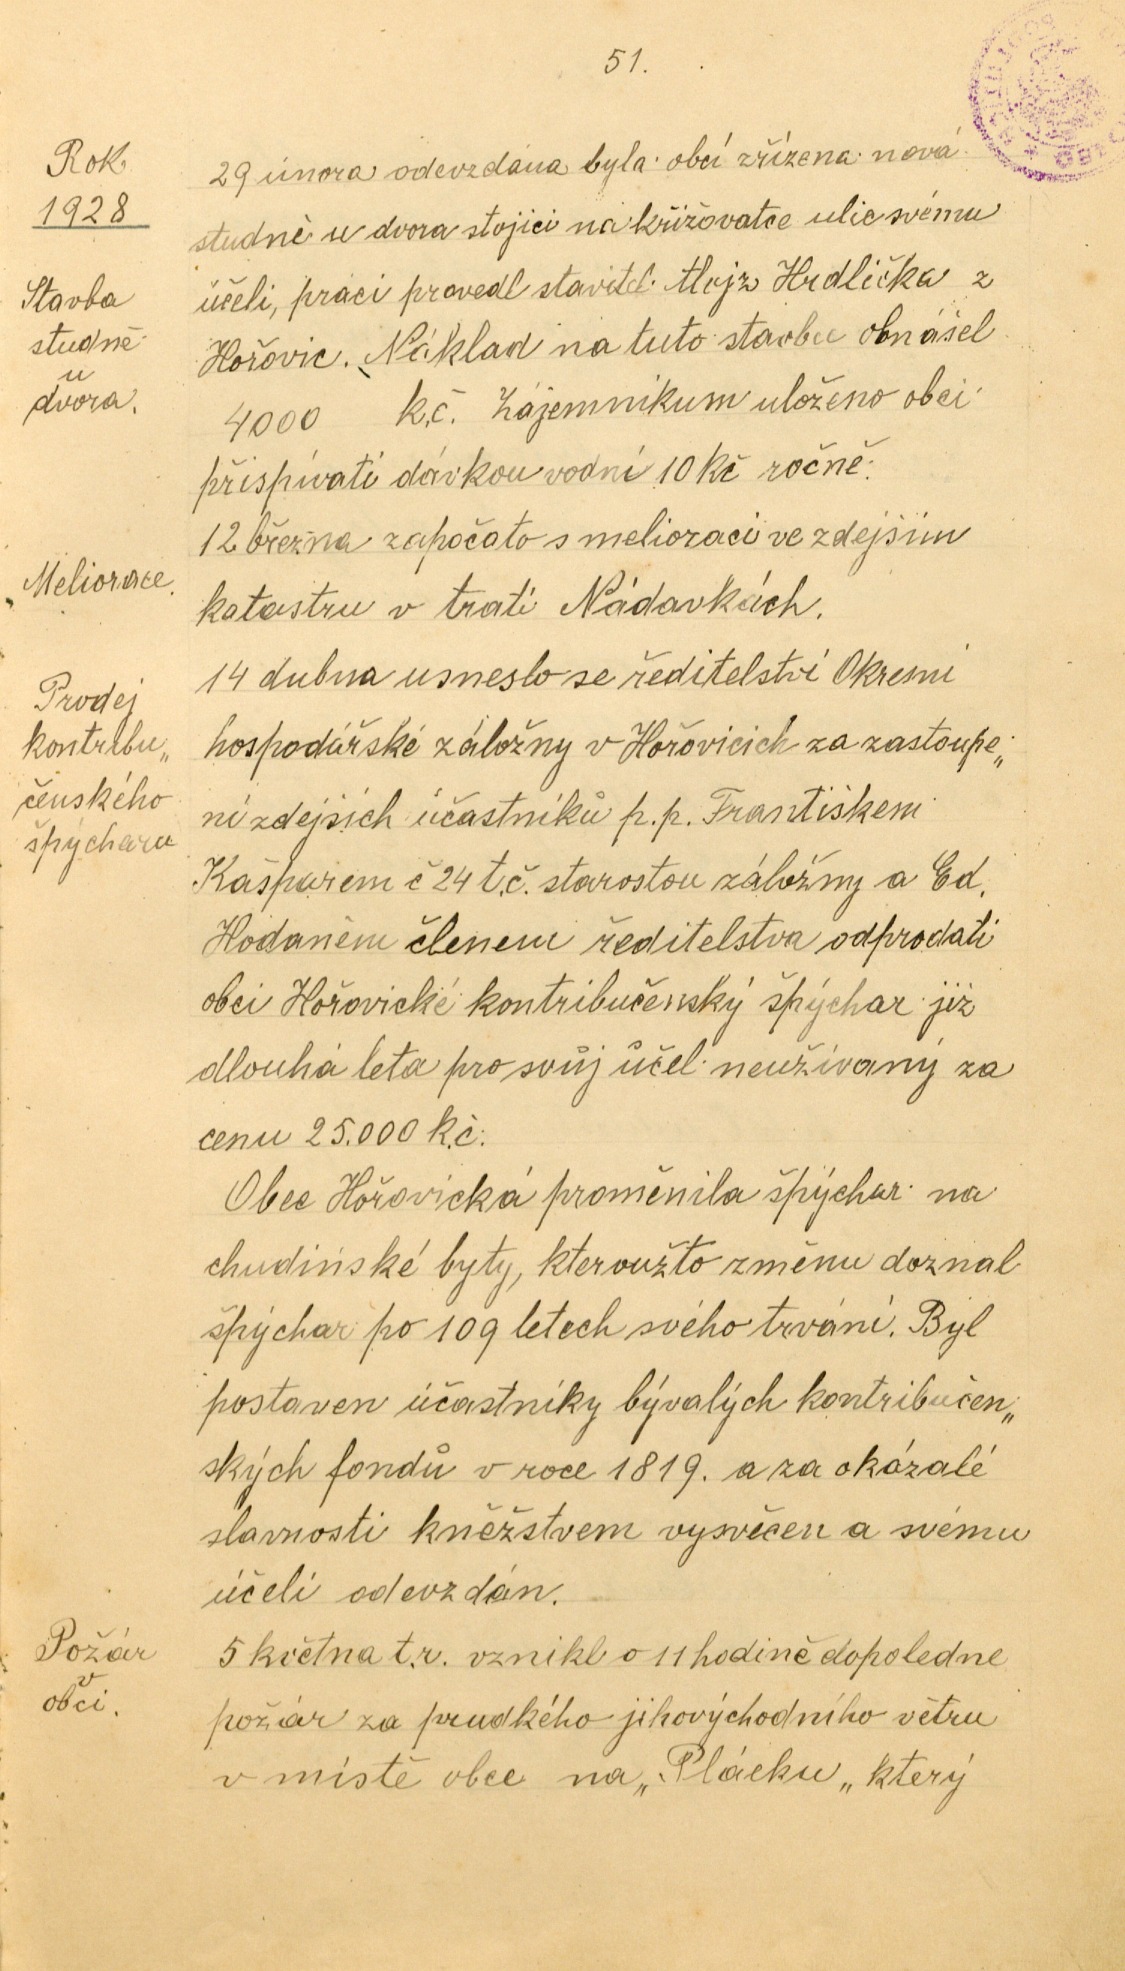 51.
Rok
1928
29 února odevzdána byla obcí zřízena nová
studně u dvora stojící na křižovatce ulic svému
Stavba
studně
u
dvora.
účeli, práci provedl stavitel Alojz Hrdlička z
Hořovic. Náklad na tuto stavbu obnášel
4000 k.č. Zájemnikum uloženo obci
přispívati dávkou vodní 10 Kč ročně.
12 března započato s melioraci ve zdejším
Meliorace.
katastru v trati Nádavkách.
14 dubna usneslo se ředitelství Okresní
Prodej
kontribu„
čenského
špýcharu
hospodářské záložny v Hořovicích za zastoupe„
ní zdejších účastníků p.p. Františkem
Kašparem č 24 t.č. starostou záložny a Ed.
Hodaněm členem ředitelstva odprodati
obci Hořovické kontribučenský špýchar již
dlouhá leta pro svůj účel neužívaný za
cenu 25.000 k.č.
Obec Hořovická proměnila špýchar na
chudinské byty, kteroužto změnu doznal
špýchar po 109 letech svého trvání. Byl
postaven účastníky bývalých kontribučen„
ských fondů v roce 1819. a za okázalé
slavnosti kněžstvem vysvěcen a svému
účeli odevzdán.
Požár
v
obci.
5 května t.r. vznikl o 11 hodině dopoledne
požár za prudkého jihovýchodního větru
v místě obce na „Plácku„ který